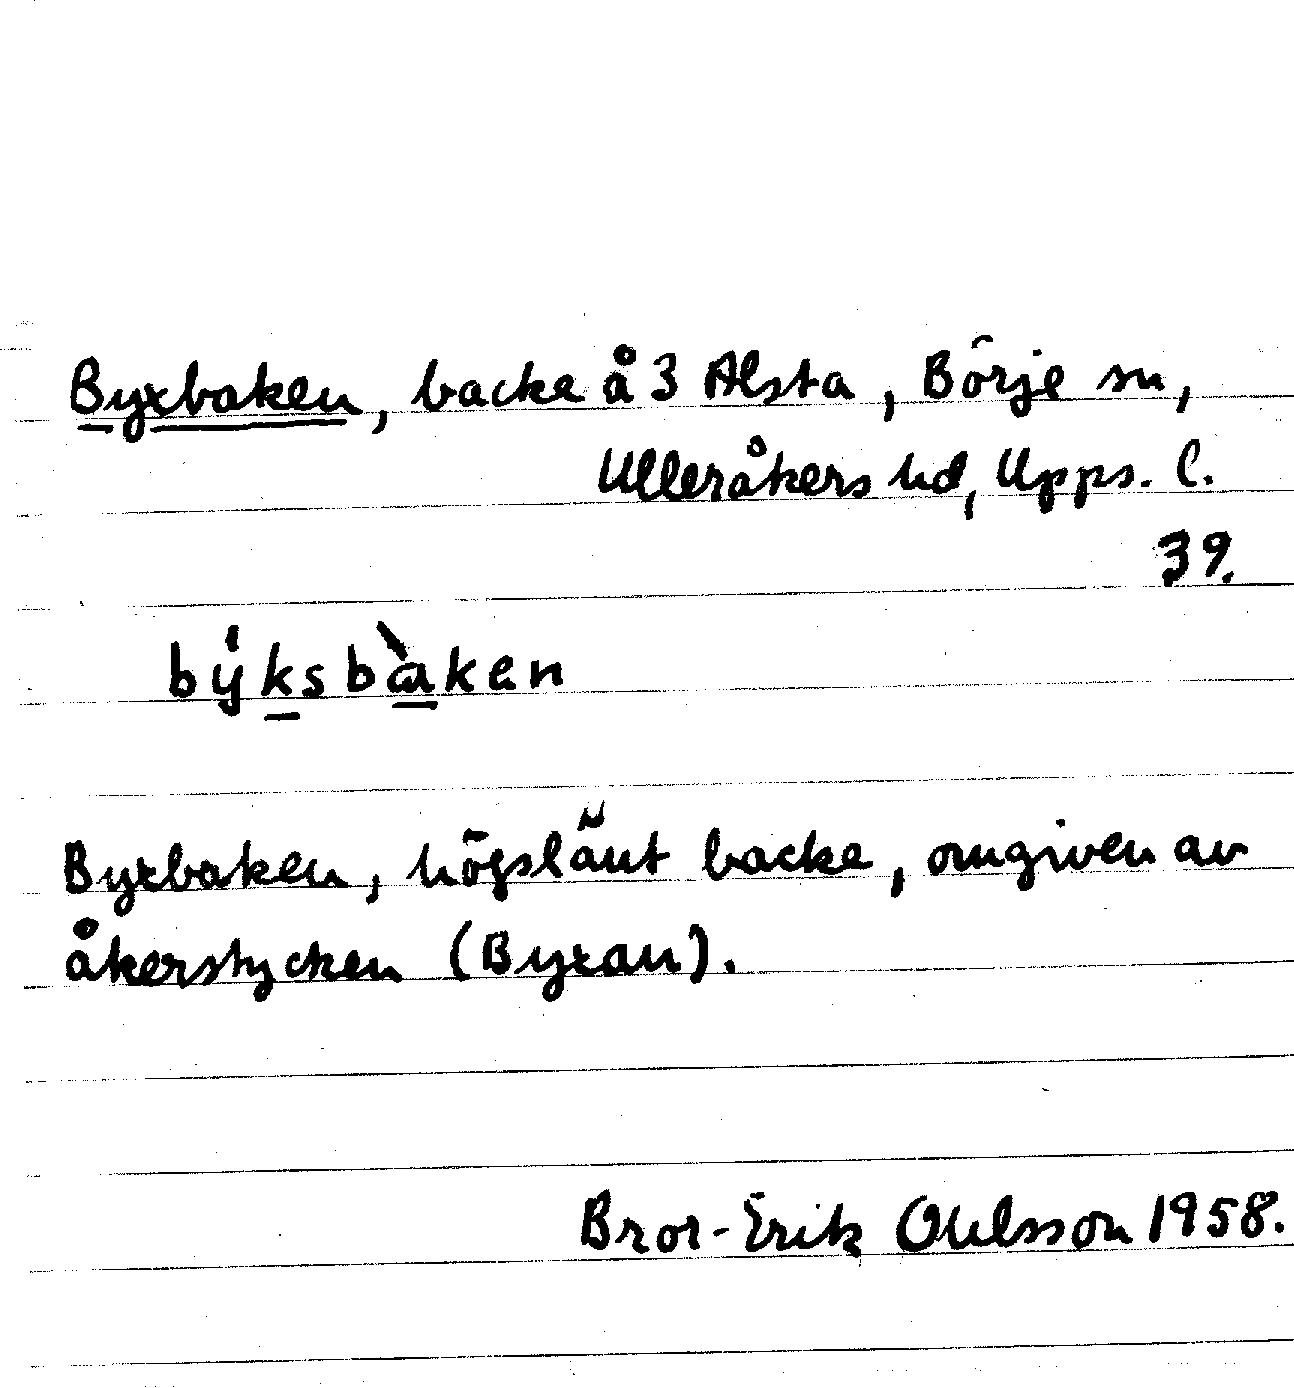 Byxbaken, backe å 3 Alsta, Börje sn,
Ulleråkers hd, Upps. l.
39.
býksbàken
Byxbaken, högslänt backe, omgiven av
åkerstycken (Byxan).
Bror-Erik Ohlsson 1958.